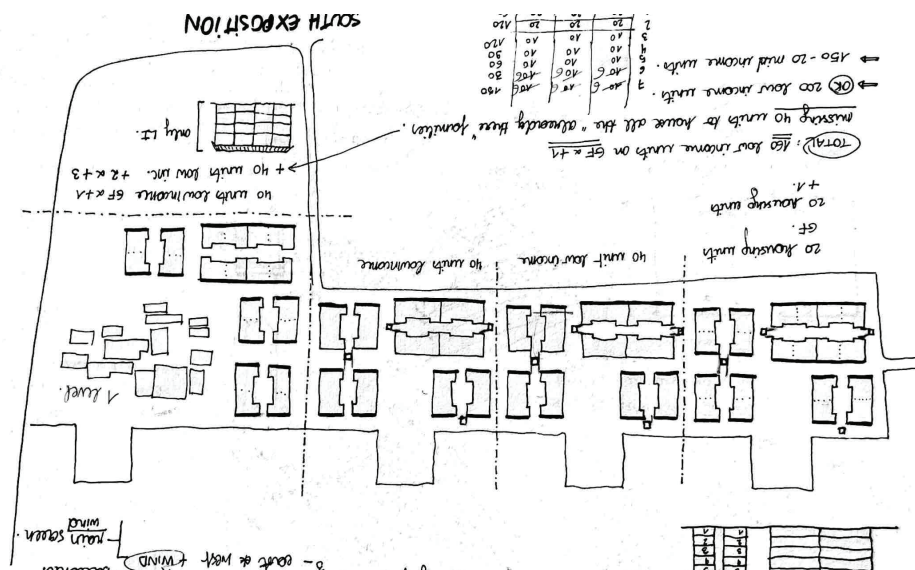 - east & west + WIND
rain screen.
wind
1 level.
20 housing units
GF.
20 housing units
+1.
40 unit low income
40 units low income
40 units low income GF & +1
+ 40 units low inc. +2 & +3
only L.I.
TOTAL: 160 low income units on GF & +1
missing 40 units to house all the "already there" families.
⇒ OK 200 low income unit.
⇒ 150-20 mid income units.
7 10 6 10 6 10 6
6 10 6 10 6 10 6 30
5 10 10 10 60
4 10 10 10
3 10 10 10 120
2 20 20 20 120
SOUTH EXPOSITION